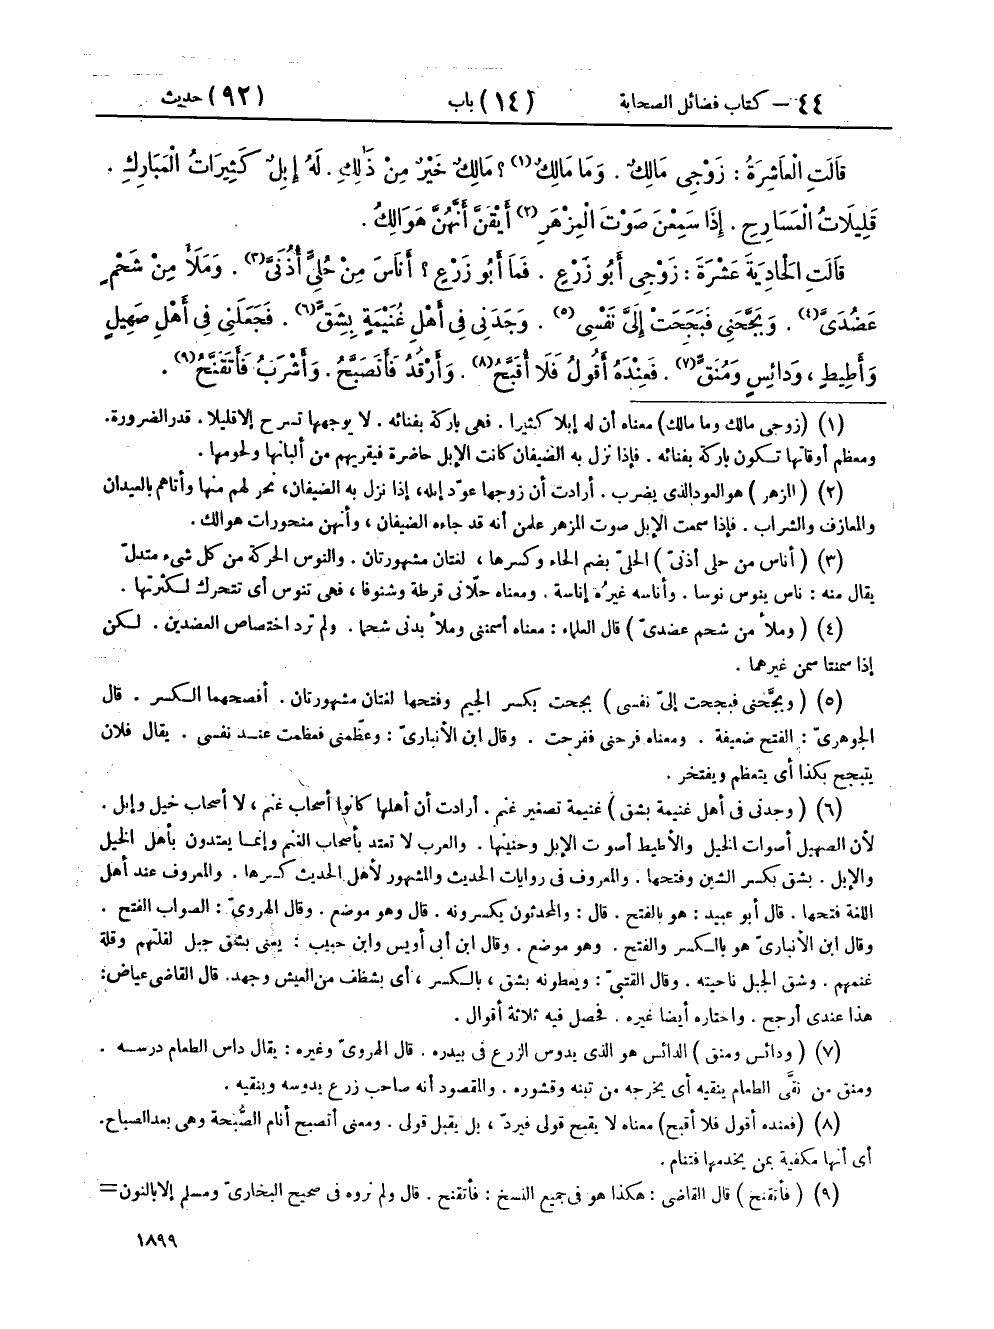 ٤٤ – كتاب فضائل الصحابة (١٤) باب (٩٢) حديث
قَالَتِ الْعَاشِرَةُ : زَوْجِى مَالِكٌ . وَمَا مَالِكٌ(١) ؟ مَالِكٌ خَيْرٌ مِنْ ذَٰلِكِ . لَهُ إِبِلٌ كَثِيرَاتُ الْمَبَارِكِ .
قَلِيلَاتُ الْمَسَارِحِ . إِذَا سَمِعْنَ صَوْتَ الْمِزْهَرِ(٢) أَيْقَنَّ أَنَّهُنَّ هَوَالِكُ .
قَالَتِ الْحَادِيَةَ عَشْرَةَ : زَوْجِى أَبُو زَرْعٍ . فَمَا أَبُو زَرْعٍ ؟ أَنَاسَ مِنْ حُلِىٍّ أُذُنَىَّ(٣) . وَمَلَأَ مِنْ شَحْمٍ
عَضُدَىَّ(٤) . وَبَجَّحَنِى فَبَجَحَتْ إِلَىَّ نَفْسِى(٥) . وَجَدَنِى فِى أَهْلِ غُنَيْمَةٍ بِشَقٍّ(٦) . فَجَعَلَنِى فِى أَهْلِ صَهِيلٍ
وَأَطِيطٍ ، وَدَائِسٍ وَمُنَقٍّ(٧) . فَعِنْدَهُ أَقُولُ فَلَا أُقَبَّحُ(٨) . وَأَرْقُدُ فَأَتَصَبَّحُ . وَأَشْرَبُ فَأَتَقَنَّحُ(٩) .
(١) (زوجى مالك وما مالك) معناه أن له إبلا كثيرا . فهى باركة بفنائه . لا يوجهها تسرح إلا قليلا . قدر الضرورة.
ومعظم أوقاتها تكون باركة بفنائه . فإذا نزل به الضيفان كانت الإبل حاضرة فيقريهم من ألبانها ولحومها .
(٢) (المزهر) هو العود الذى يضرب . أرادت أن زوجها عوّد إبله، إذا نزل به الضيفان، نحر لهم منها وأتاهم بالعيدان
والمعازف والشراب . فإذا سمعت الإبل صوت المزهر علمن أنه قد جاءه الضيفان ، وأنهن منحورات هوالك .
(٣) ( أناس من حلى أذنىّ ) الحلىّ بضم الحاء وكسرها ، لغتان مشهورتان . والنوس الحركة من كل شىء متدلّ
يقال منه : ناس ينوس نوسا . وأناسه غيرُه إناسة . ومعناه حلّانى قرطة وشنوفا ، فهى تنوس أى تتحرك لكثرتها .
(٤) ( وملأ من شحم عضدىّ ) قال العلماء : معناه أسمننى وملأ بدنى شحما . ولم ترد اختصاص العضدين . لكن
إذا سمنتا سمن غيرهما .
(٥) ( وبجَّحنى فبجحت إلىّ نفسى ) بجحت بكسر الجيم وفتحها لغتان مشهورتان . أفصحهما الكسر . قال
الجوهرىّ : الفتح ضعيفة . ومعناه فرحنى ففرحت . وقال ابن الأنبارىّ : وعظّمنى فعظمت عند نفسى . يقال فلان
يتبجح بكذا أى يتعظم ويفتخر .
(٦) ( وجدنى فى أهل غنيمة بشق ) غنيمة تصغير غنم . أرادت أن أهلها كانوا أصحاب غنم ، لا أصحاب خيل وإبل .
لأن الصهيل أصوات الخيل والأطيط أصوت الإبل وحنينها . والعرب لا تعتد بأصحاب الغنم وإنما يعتدون بأهل الخيل
والإبل . بشق بكسر الشين وفتحها . والمعروف فى روايات الحديث والمشهور لأهل الحديث كسرها . والمعروف عند أهل
اللغة فتحها . قال أبو عبيد : هو بالفتح . قال : والمحدثون يكسرونه . قال وهو موضع . وقال الهروىّ : الصواب الفتح .
وقال ابن الأنبارىّ هو بالكسر والفتح . وهو موضع . وقال ابن أبى أويس وابن حبيب : يعنى بشق جبل لقلتهم وقلة
غنمهم . وشق الجبل ناحيته . وقال القتبىّ : ويعطونه بشق ، بالكسر ، أى بشظف من العيش وجهد. قال القاضى عياض:
هذا عندى أرجح . واختاره أيضا غيره . فحصل فيه ثلاثة أقوال .
(٧) ( ودائس ومنق ) الدائس هو الذى يدوس الزرع فى بيدره . قال الهروىّ وغيره : يقال داس الطعام درسه .
ومنق من نقَّى الطعام ينقيه أى يخرجه من تبنه وقشوره . والمقصود أنه صاحب زرع يدوسه وينقيه .
(٨) (فعنده أقول فلا أقبح) معناه لا يقبح قولى فيردّ ، بل يقبل قولى . ومعنى أتصبح أنام الصُّبحة وهى بعد الصباح.
أى أنها مكفية بمن يخدمها فتنام .
(٩) ( فأتقنح ) قال القاضى : هكذا هو فى جميع النسخ : فأتقنح . قال ولم نروه فى صحيح البخارىّ ومسلم إلا بالنون=
١٨٩٩